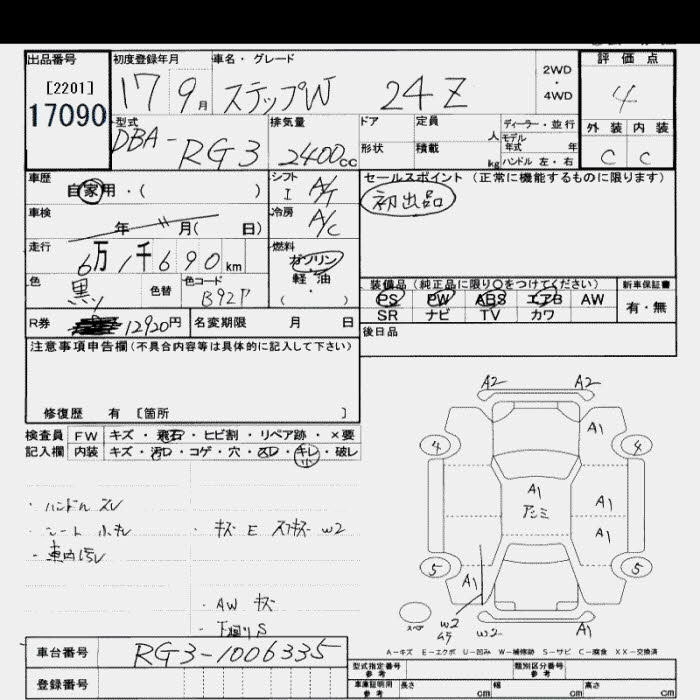 出品番号 初度登録年月 車名・グレード 2WD・4WD 評価点
[2201] 17090 17 9月 ステップW 24Z 4
型式 排気量 ドア 定員 人 ディーラー・並行 外装 内装
DBA-RG3 2400cc 形状 積載 kg モデル年式 年 ハンドル 左・右 C C
車歴 自家用・( ) シフト I A/T セールスポイント (正常に機能するものに限ります)
初出品
車検 年 月( 日) 冷房 A/C
走行 6万1千690km 燃料 ガソリン・軽油・( )
色 黒 色替 色コード B92P
装備品 (純正品に限り○をつけてください) 新車保証書
PS PW ABS エアB AW 有・無
SR ナビ TV カワ
R券 12920円 名変期限 月 日 後日品
注意事項申告欄(不具合内容等は具体的に記入して下さい)
修復歴 有 [箇所 ]
検査員 FW キズ・飛石・ヒビ割・リペア跡・×要
記入欄 内装 キズ・汚レ・コゲ・穴・スレ・キレ・破レ
小
・ハンドル スレ
・シート 小キレ ・キズ E スリキズ W2
・車内汚レ
・AW キズ
・下回りS
A2 A2
A1
4 4
A1 アンミ A1
A1
5 5
A1 A1
W2 W2
A-キズ E-エクボ U-凹み W-補修跡 S-サビ C-腐食 XX-交換済
車台番号 RG3-1006335 型式指定番号 参考 類別区分番号 参考
登録番号 車庫証明用 参考 長さ cm 幅 cm 高さ cm